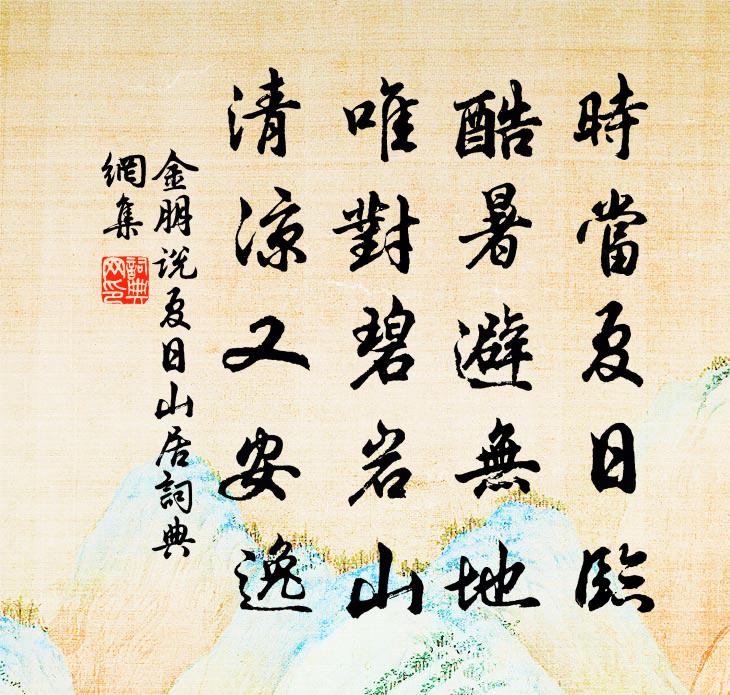 時當夏日臨
酷暑避無地
唯對碧岩山
清涼又安逸
金朋说夏日山居詞典
網集
詞典
网印